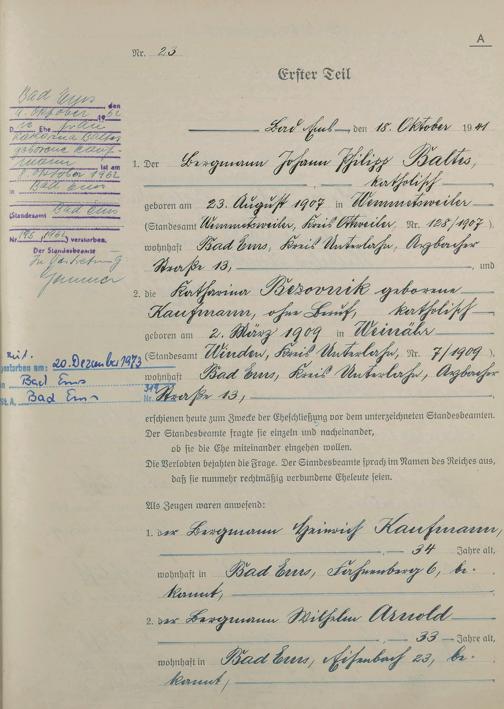 A
Nr. 23
Erster Teil
Bad Ems, den 18. Oktober 1941
1. Der Bergmann Johann Philipp Baltes,
katholisch
geboren am 23. August 1907 in Wemmetsweiler
(Standesamt Wemmetsweiler, Kreis Ottweiler, Nr. 128/1907),
wohnhaft Bad Ems, Kreis Unterlahn, Arzbacher
Straße 13, und
2. die Katharina Bezovnik geborene
Kaufmann, ohne Beruf, katholisch
geboren am 2. März 1909 in Weinähr
(Standesamt Winden, Kreis Unterlahn, Nr. 7/1909),
wohnhaft Bad Ems, Kreis Unterlahn, Arzbacher
Straße 13,
erschienen heute zum Zwecke der Eheschließung vor dem unterzeichneten Standesbeamten.
Der Standesbeamte fragte sie einzeln und nacheinander,
ob sie die Ehe miteinander eingehen wollen.
Die Verlobten bejahten die Frage. Der Standesbeamte sprach im Namen des Reiches aus,
daß sie nunmehr rechtmäßig verbundene Eheleute seien.
Als Zeugen waren anwesend:
1. der Bergmann Heinrich Kaufmann,
34 Jahre alt,
wohnhaft in Bad Ems, Fahnenberg 6, be-
kannt,
2. der Bergmann Wilhelm Arnold
33 Jahre alt,
wohnhaft in Bad Ems, Eisenbach 23, be-
kannt,
Bad Ems
den
9. Oktober 1962
D ie Ehefrau
Katharina Baltes
geborene Kauf-
mann ist am
8. Oktober 1962
in Bad Ems
(Standesamt Bad Ems
Nr. 195/1962) verstorben.
Der Standesbeamte
In Vertretung
gestorben am: 20. Dezember 1973
in Bad Ems
St.A. Bad Ems Nr.